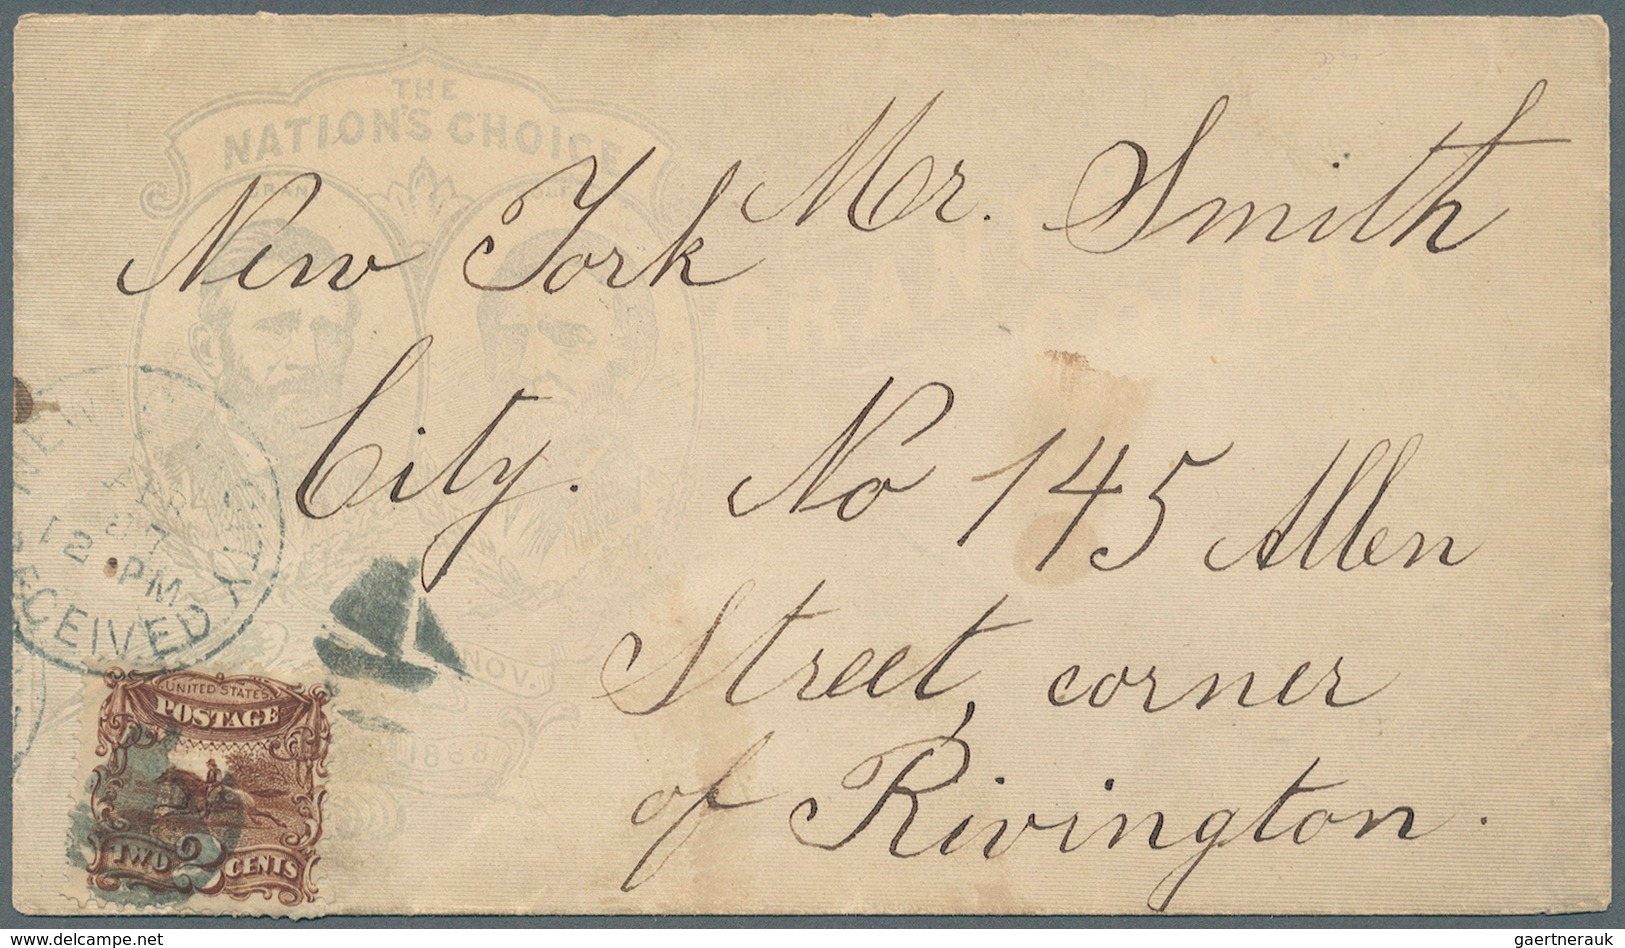 THE
NATION'S CHOICE
Mr. Smith
New York
City.
No 145 Allen
Street, corner
of Rivington.
NEW
CITY
12 PM
RECEIVED
NOV.
1868
UNITED STATES
POSTAGE
TWO 2 CENTS
www.delcampe.net
gaertnerauk